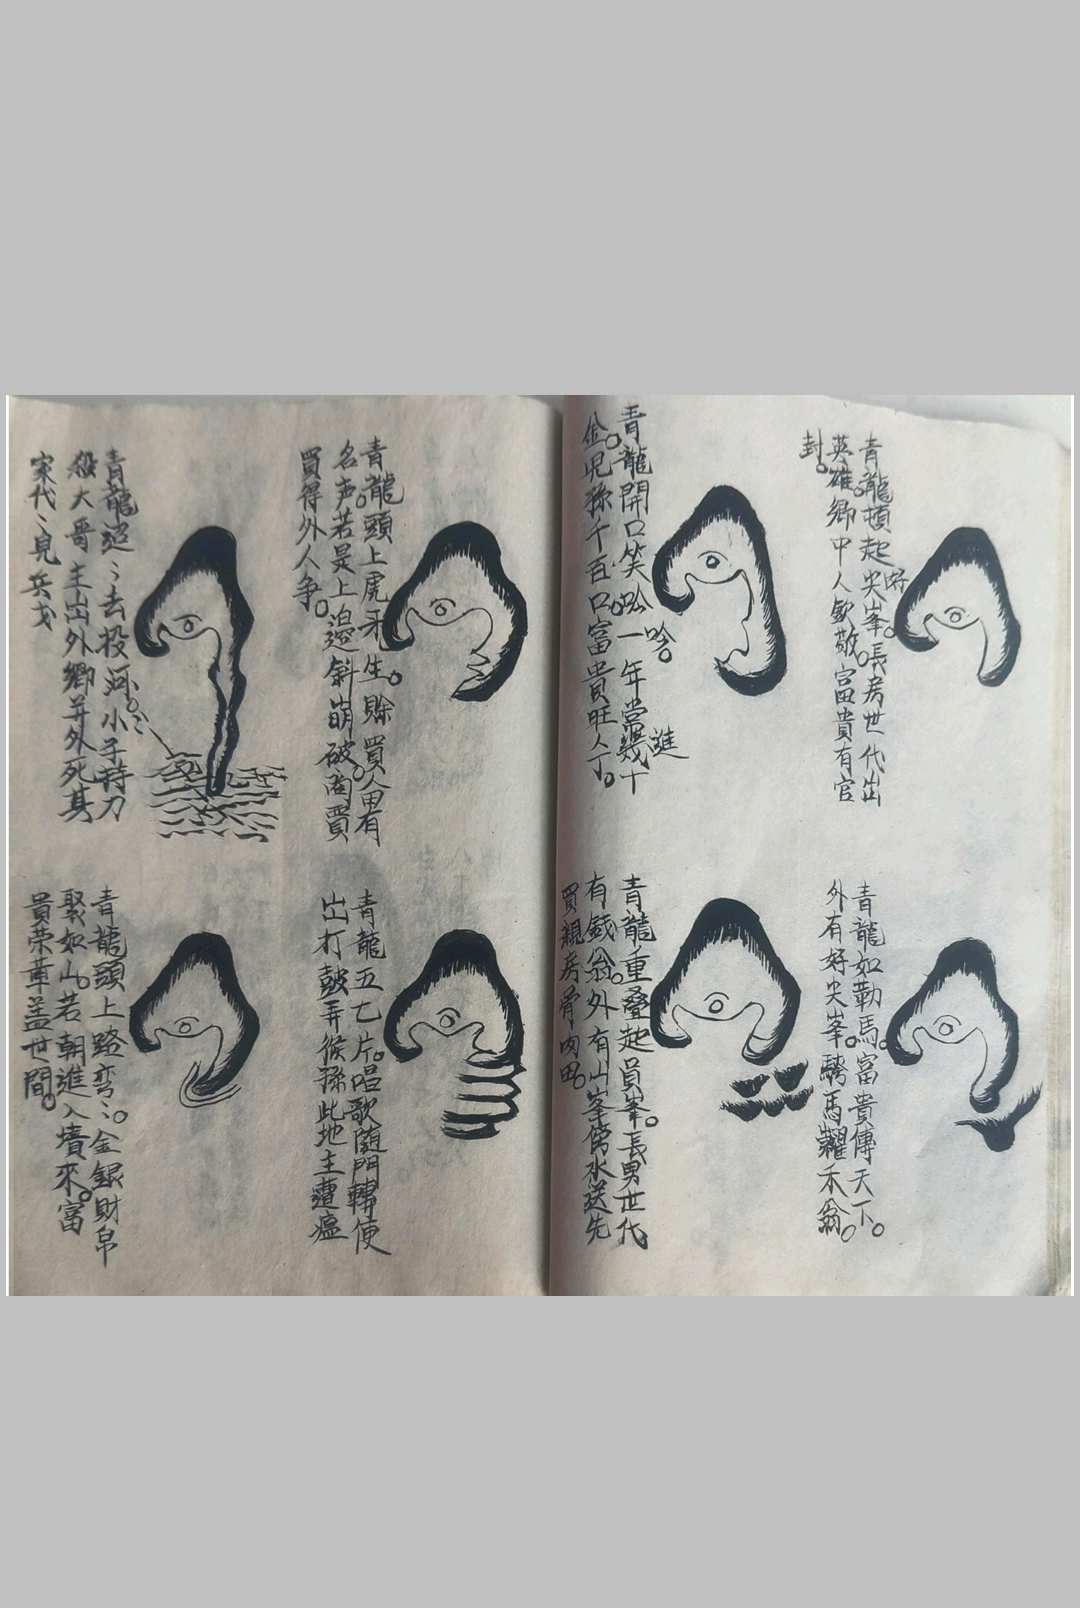 青龍頓起好尖峯。長房世代出
英雄。鄉中人欽敬。富貴有官
封。
青龍如勒馬。富貴傳天下。
外有好尖峯。騎馬糶禾翁。
青龍開口笑哈哈。一年常進幾十
金。児孫千百口。富貴旺人丁。
青龍重叠起員峯。長男世代
有錢翁。外有山峯傍水送先
買親房骨肉田。
青龍頭上虎牙生。賖買人田有
名声。若是上邉斜崩破。商賈
買得外人争。
青龍五七片。唱歌隨門轉使
出打鼓弄猴猻此地主遭瘟
青龍迢〻去投河小子持刀
殺大哥主出外鄉并外死其
家代〻見兵戈
青龍頭上路弯〻。金銀財帛
聚如山。若朝進入墳來。富
貴荣華盖世間。